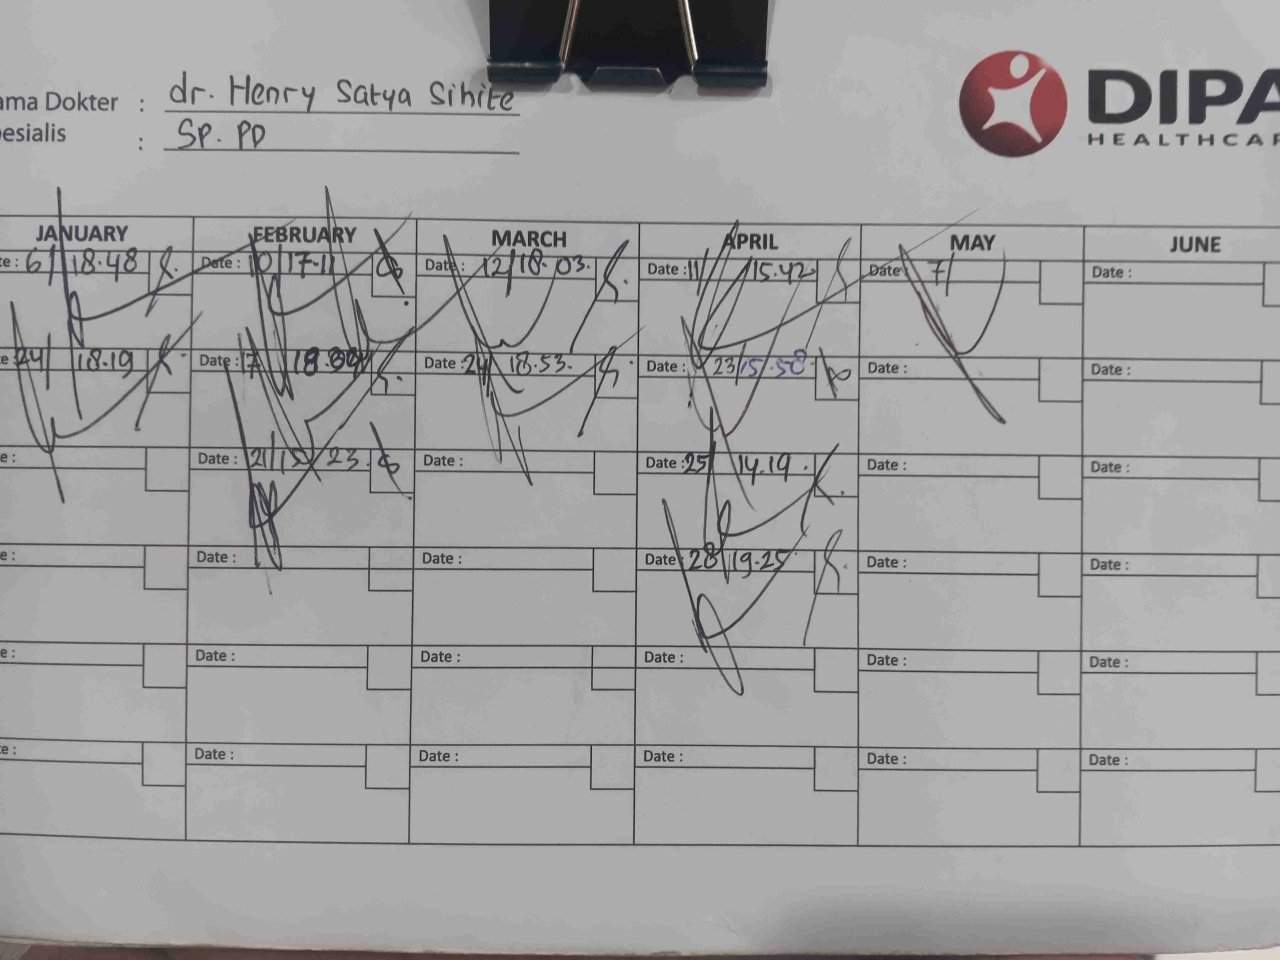 ama Dokter : dr. Henry Satya Sihite
esialis : Sp. PD
DIPA
HEALTHCAR
JANUARY FEBRUARY MARCH APRIL MAY JUNE
te: 6/ 18.48 Date: 10/17.11 Date: 12/18.03. Date: 11/ 15.42 Date: 7/ Date:
te: 24/ 18.19 Date: 17 Date: 24/ 18.53. Date: 23/15.50. Date: Date:
e: Date: 21/15 23. Date: Date: 25/ 14.19. Date: Date:
e: Date: Date: Date: 28/19.25 Date: Date:
e: Date: Date: Date: Date: Date:
e: Date: Date: Date: Date: Date: